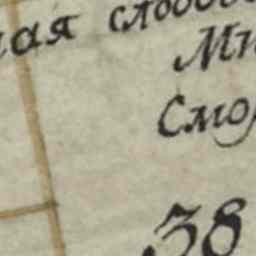 ная слобо
Ми
Смо
38